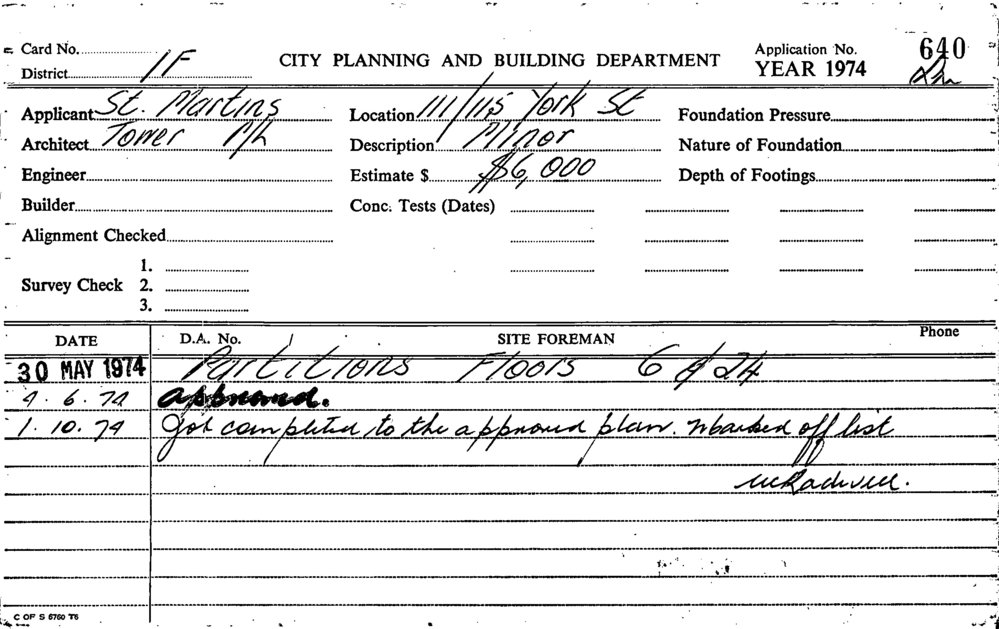 Card No.
District 1F
CITY PLANNING AND BUILDING DEPARTMENT
Application No. 640
YEAR 1974
Applicant St. Martins
Location 111/115 York St
Foundation Pressure
Architect Tower P/L
Description Minor
Nature of Foundation
Engineer
Estimate $ $6,000
Depth of Footings
Builder
Conc. Tests (Dates)
Alignment Checked
Survey Check 1.
2.
3.
DATE D.A. No. SITE FOREMAN Phone
30 MAY 1974 Partitions Floors 6 & 24
4.6.74 approved.
1.10.74 Job completed to the approved plan. Marked off list
C OF S 5760 T6